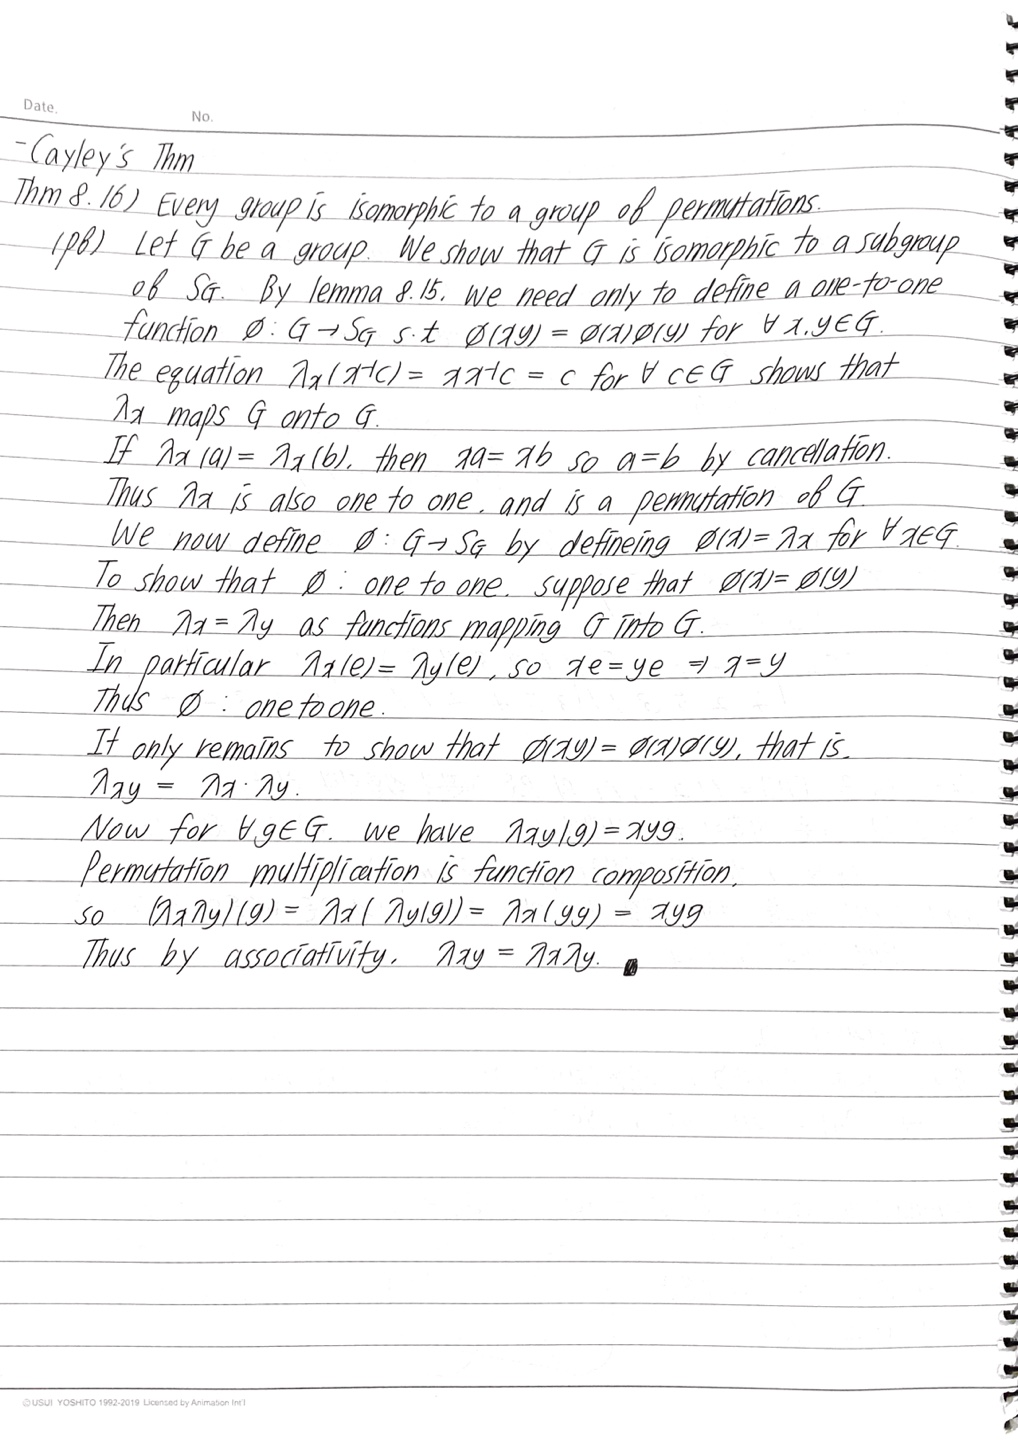 Date.
No.
- Cayley's Thm
Thm 8.16) Every group is isomorphic to a group of permutations.
(pf) Let G be a group. We show that G is isomorphic to a subgroup
of SG. By lemma 8.15, we need only to define a one-to-one
function ø : G → SG s.t ø(xy) = ø(x)ø(y) for ∀ x,y∈G.
The equation λx(x⁻¹c) = xx⁻¹c = c for ∀ c∈G shows that
λx maps G onto G.
If λx(a) = λx(b), then xa = xb so a=b by cancellation.
Thus λx is also one to one, and is a permutation of G.
We now define ø : G→SG by defineing ø(x) = λx for ∀ x∈G.
To show that ø : one to one. suppose that ø(x) = ø(y)
Then λx = λy as functions mapping G into G.
In particular λx(e) = λy(e), so xe = ye ⇒ x=y
Thus ø : one to one.
It only remains to show that ø(xy) = ø(x)ø(y), that is.
λxy = λx · λy.
Now for ∀g∈G. we have λxy(g) = xyg.
Permutation multiplication is function composition,
so (λxλy)(g) = λx( λy(g)) = λx(yg) = xyg
Thus by associativity. λxy = λxλy.
© USUI YOSHITO 1992-2019 Licensed by Animation Int'l